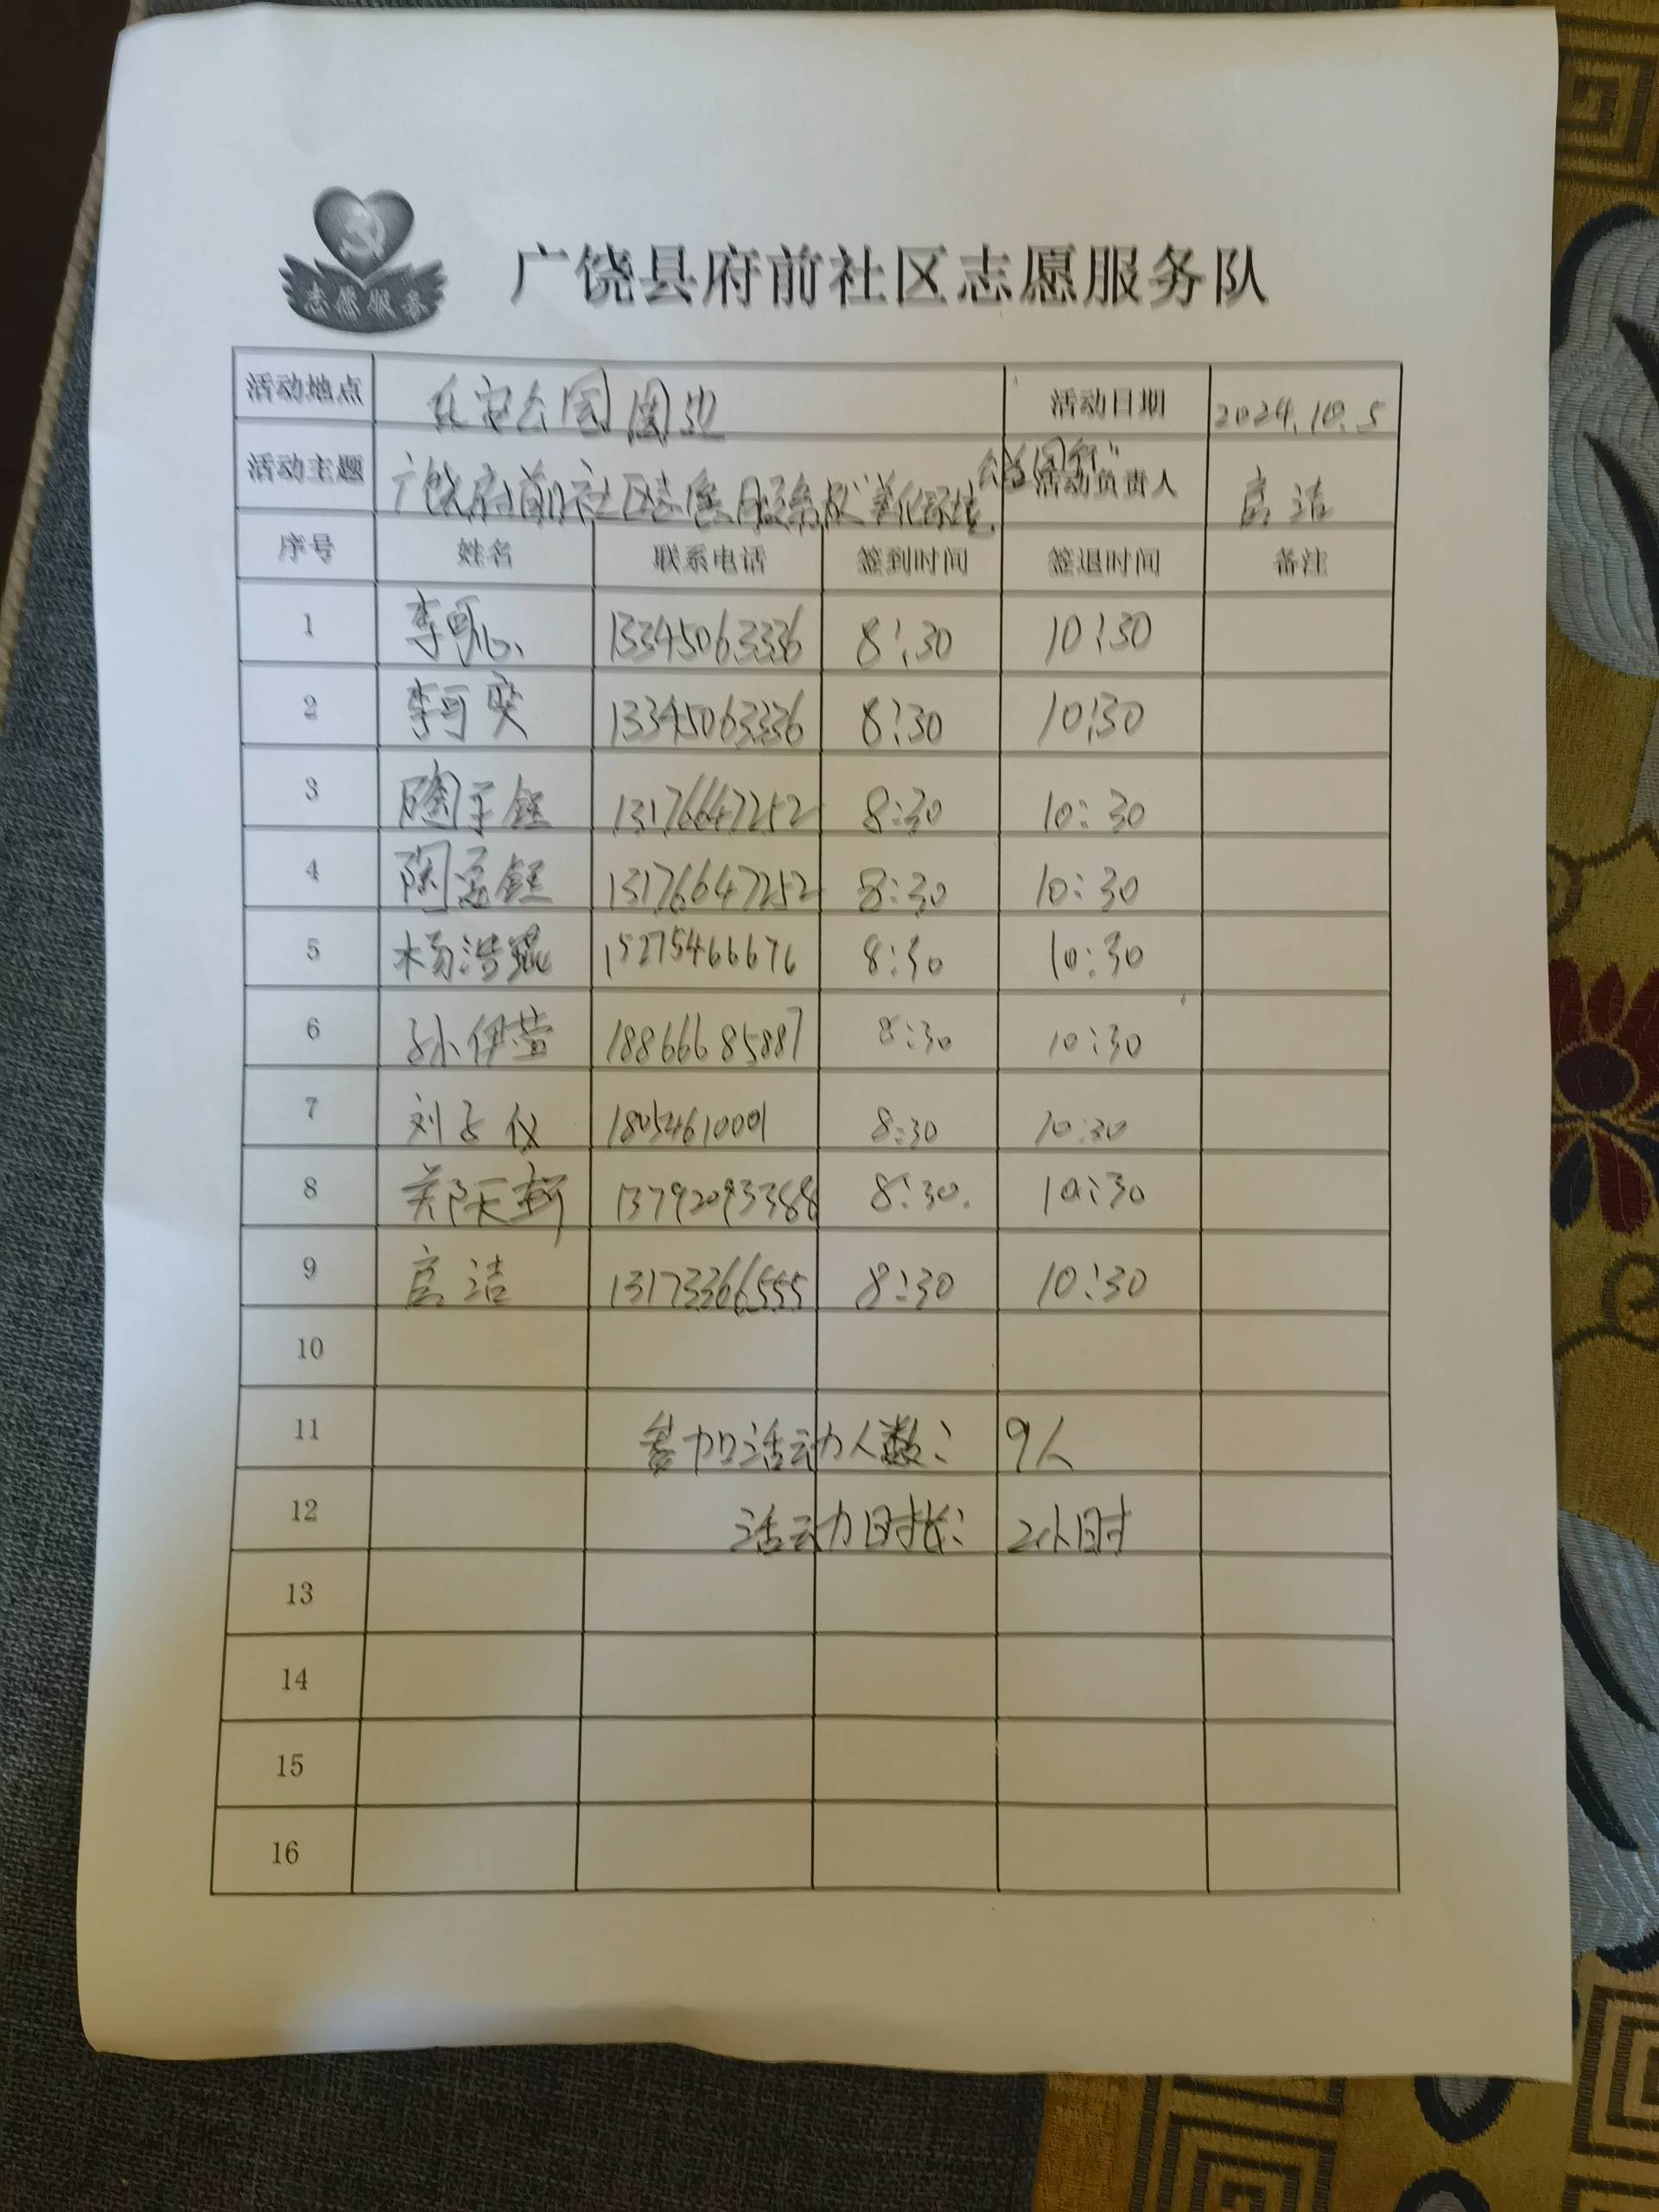 志愿服务
广饶县府前社区志愿服务队
活动地点 乐安公园周边 活动日期 2024.10.5
活动主题 广饶府前社区志愿服务队"美化环境, 公益同行" 活动负责人 启洁
序号 姓名 联系电话 签到时间 签退时间 备注
1 李可心 13345063336 8:30 10:30
2 李可奕 13345063336 8:30 10:30
3 陶子钰 13176647252 8:30 10:30
4 陶孟钰 13176647252 8:30 10:30
5 杨浩琨 15275466676 8:30 10:30
6 孙伊萱 18866685887 8:30 10:30
7 刘子仪 18054610001 8:30 10:30
8 郑天 13792093388 8:30. 10:30
9 洁 13173366555 8:30 10:30
10
11 参加活动人数: 9人
12 活动时长: 2小时
13
14
15
16